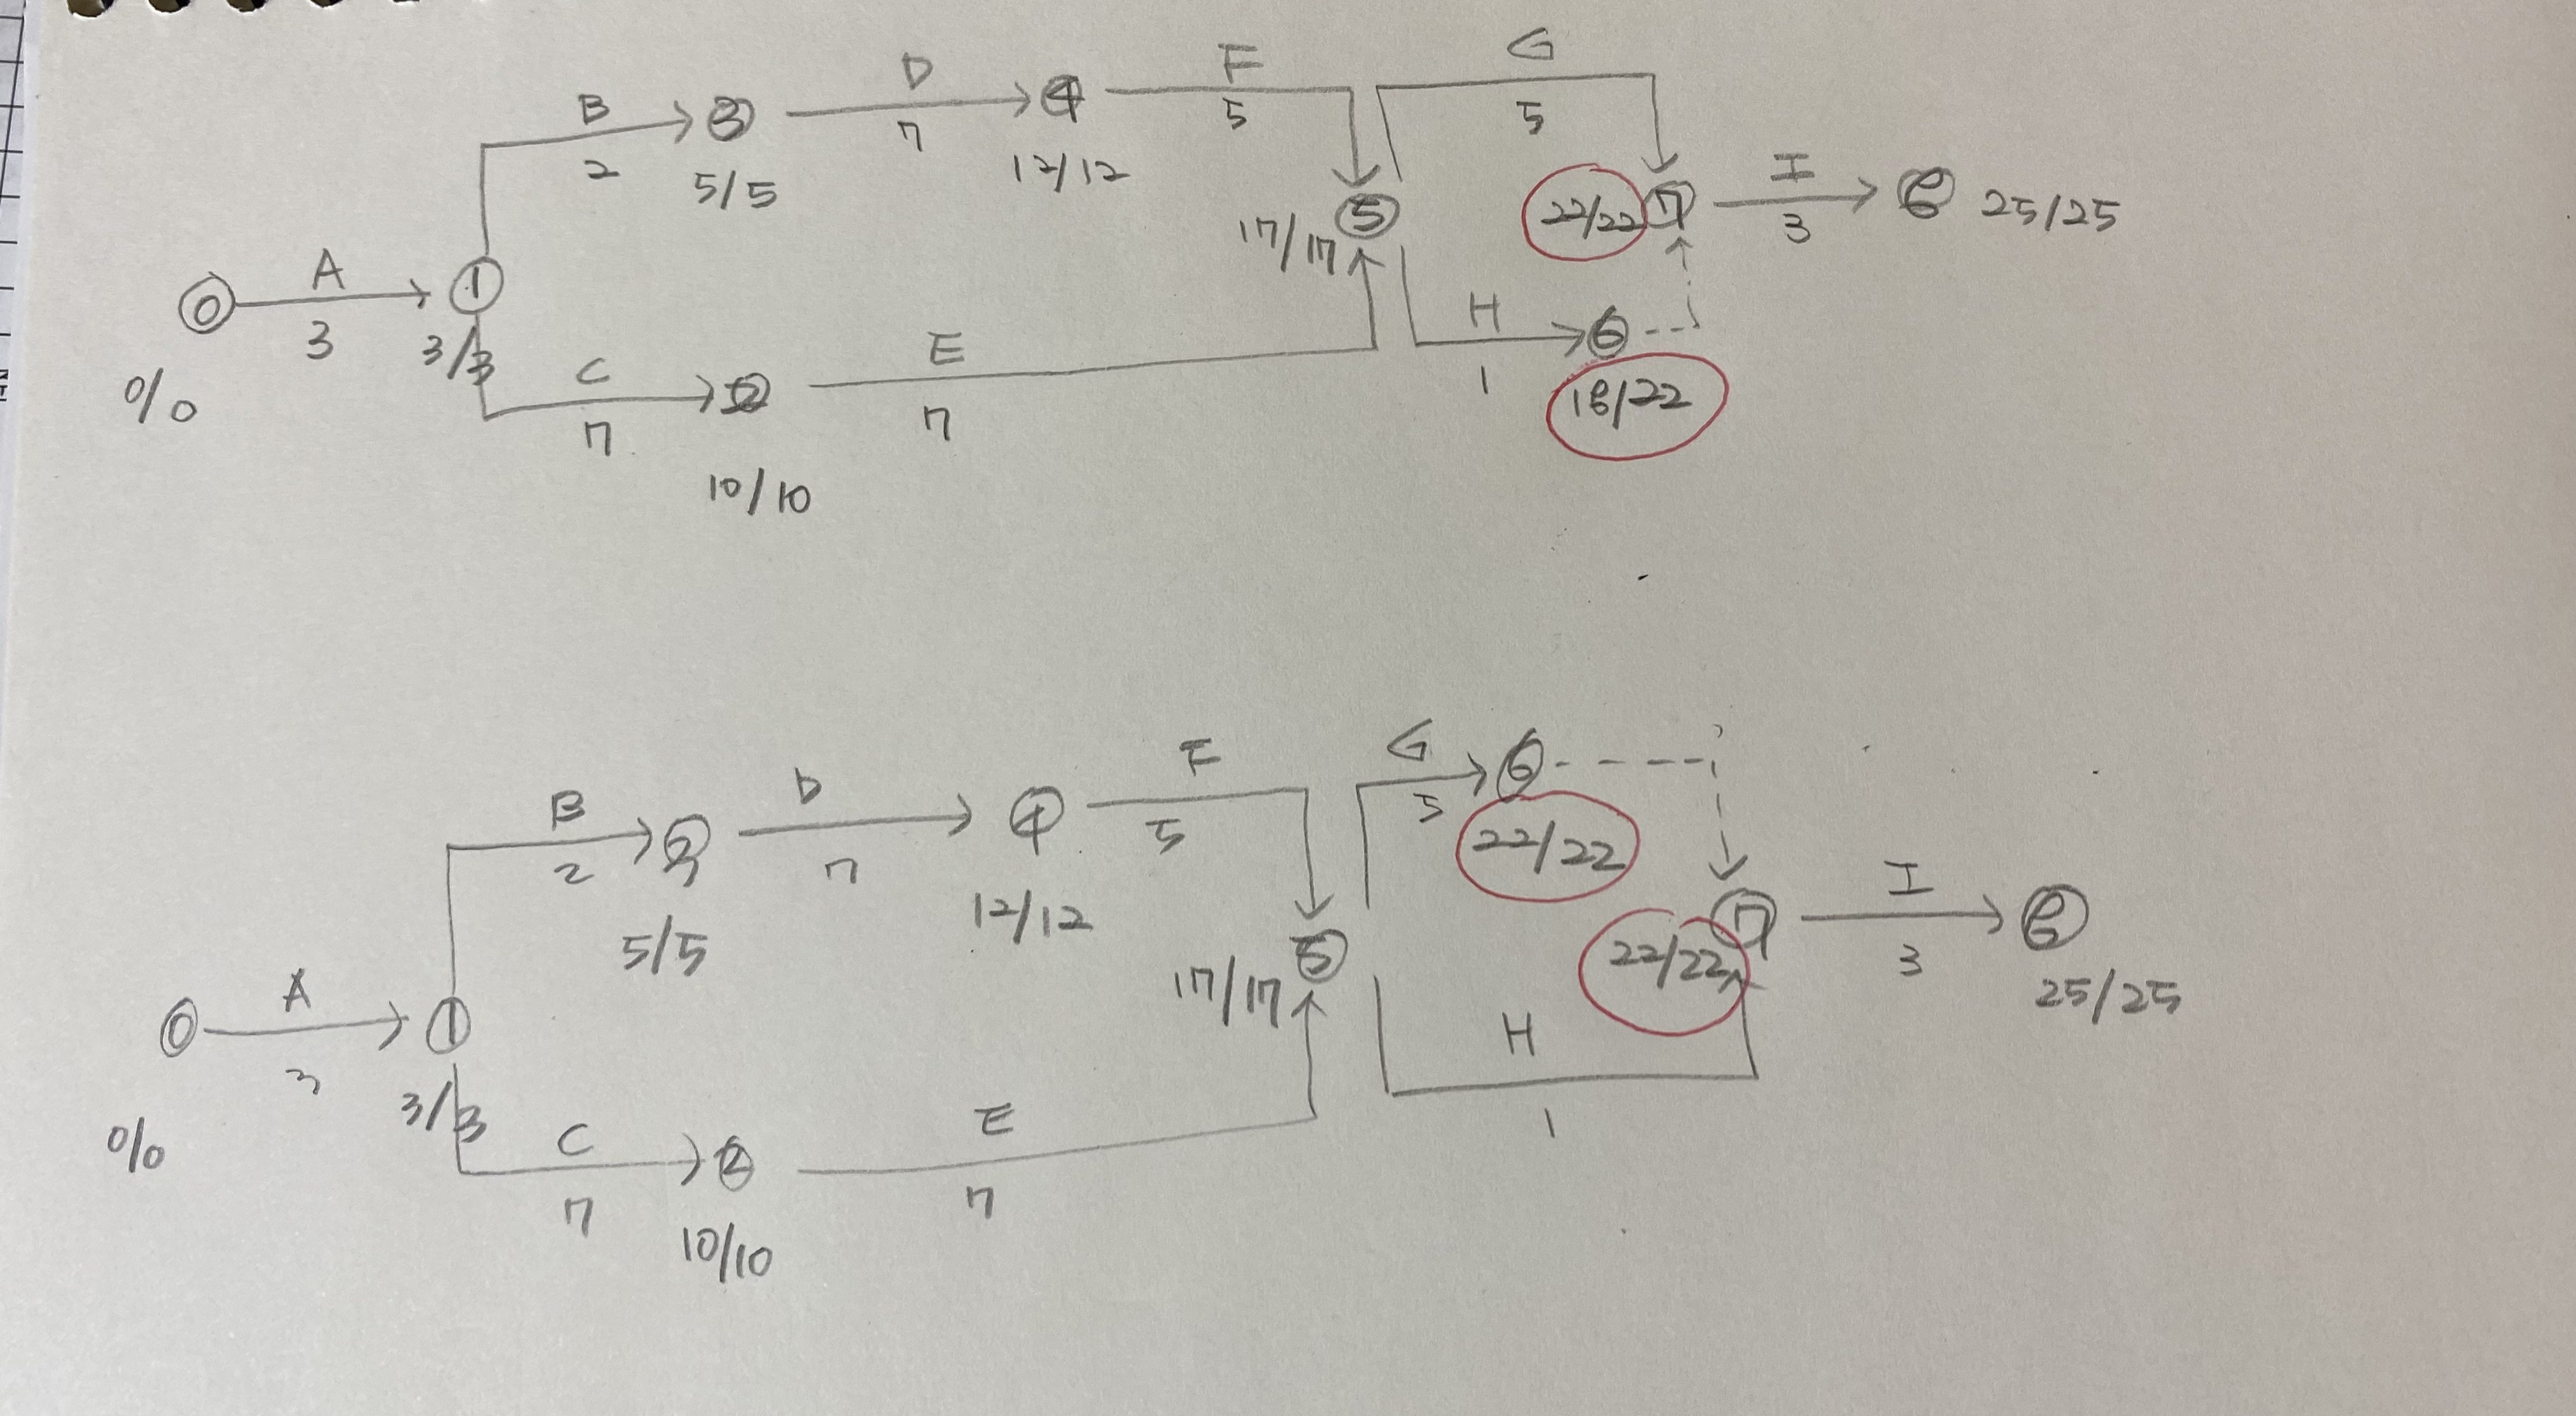 G
F
D
B
5
5
7
2
12/12
5/5
I
22/22 7
8 25/25
5
17/17
3
A
0
1
H
6
3
3/3
E
1
C
2
18/22
0/0
7
7
10/10
G
6
F
D
B
5
5
4
3
2
7
22/22
I
12/12
7
8
5/5
5
22/22
3
17/17
25/25
A
0
1
H
3
3/3
E
1
0/0
C
2
7
7
10/10